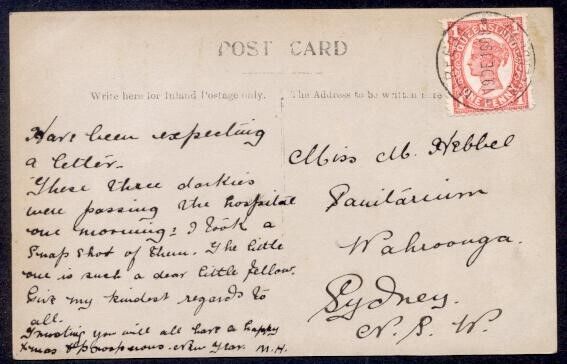 POST CARD
Write here for Inland Postage only.
The Address to be written here
QUEENSLAND
ONE PENNY
Have been expecting
a letter.
These three darkies
were passing the hospital
one morning: I took a
snap shot of them. The little
one is such a dear little fellow.
Give my kindest regards to
all.
Trusting you will all have a happy
Xmas & prosperous New Year. M.H.
Miss M. Hebbel
Sanitarium
Wahroonga.
Sydney.
N. S. W.